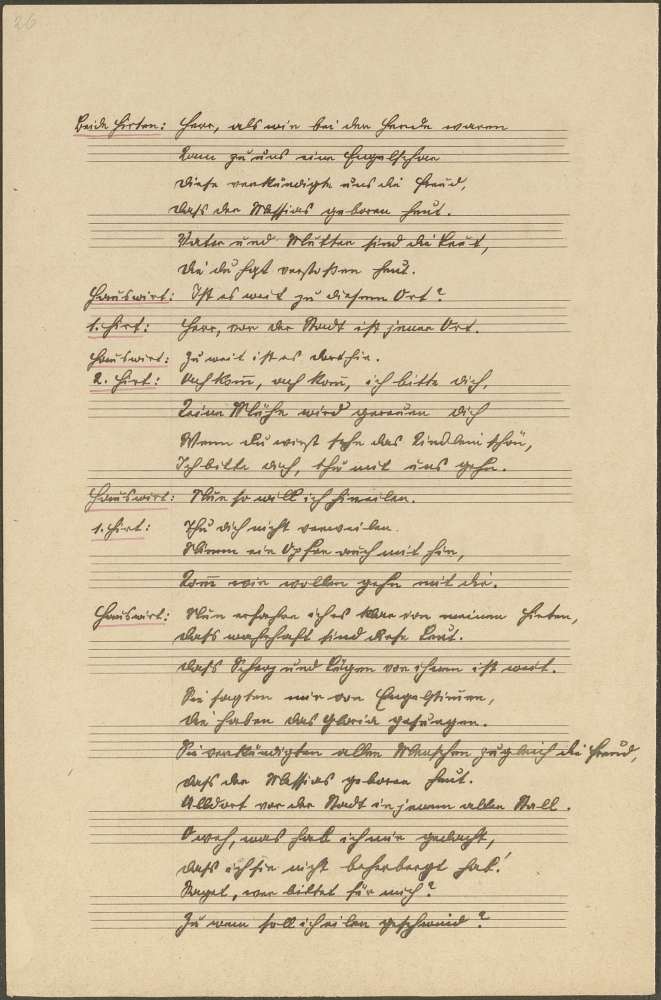 26
Beide Hirten: Herr, als wir bei der Herde waren
Kam zu uns eine Engelschar
Diese verkündigte uns die Freud,
Dass der Messias geboren heut.
Vater und Mutter sind die Leut,
Die du hast verstoßen heut.
Hauswirt: Ist es weit zu diesem Ort?
1. Hirt: Herr, vor der Stadt ist jener Ort.
Hauswirt: Zu weit ist es dorthin.
2. Hirt: Ach kom̄, ach kom̄, ich bitte dich,
Keine Mühe wird gereuen dich
Wenn du wirst sehn das Kindlein schön,
Ich bitte dich, thu mit uns gehn.
Hauswirt: Nun so will ich hineilen.
1. Hirt: Thu dich nicht verweilen.
Nimm ein Opfer auch mit hin,
Kom̄ wir wollen gehn mit dir.
Hauswirt: Nun erfahre ich es klar von meinen Hirten,
Dass wahrhaft sind diese Leut.
Dass Scherz und Lügen von ihnen ist weit.
Sie sagten mir von Engelstim̄en,
die haben das Gloria gesungen.
Sie verkündigten allen Menschen zugleich die Freud,
dass der Messias geboren heut.
Alldort vor der Stadt in jenem alten Stall.
O weh, was hab ich mir gedacht,
dass ich sie nicht beherbergt hab!
Saget, wer bittet für mich?
Zu wem soll ich eilen geschwind?